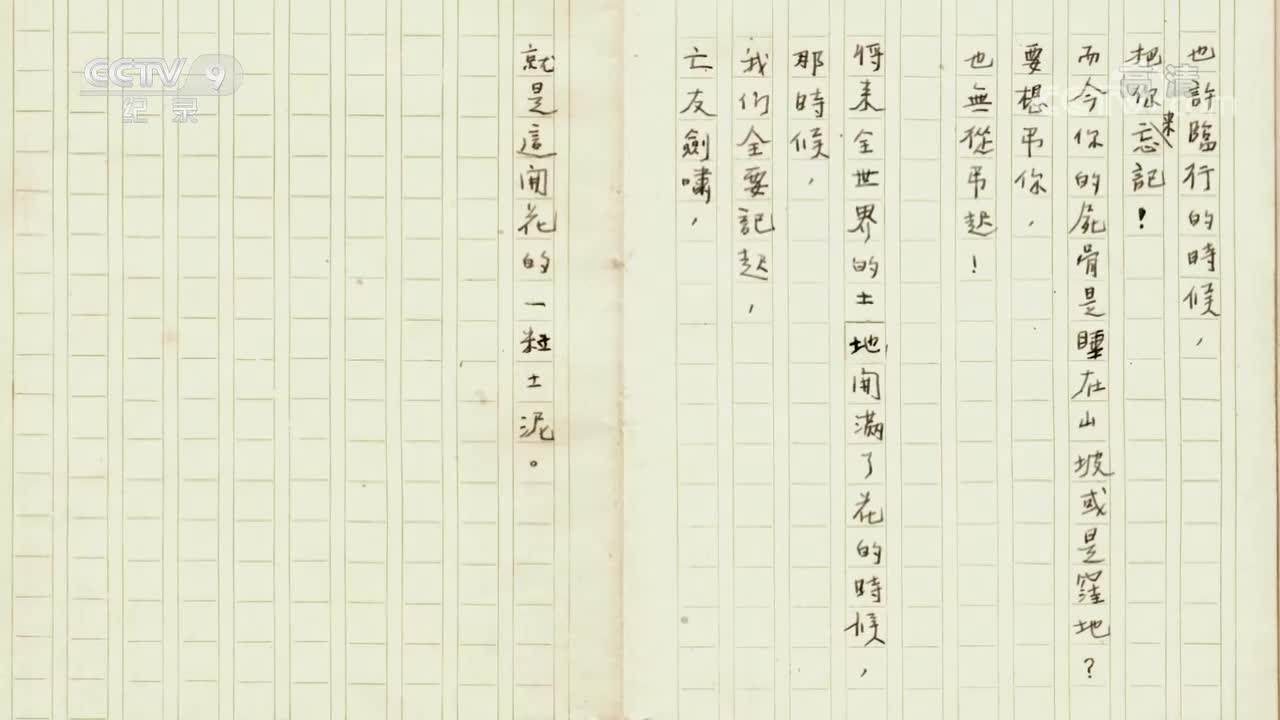 也許臨行的時候，
把你忘來記！
而今你的屍骨是睡在山坡或是窪地？
要想弔你，
也無從弔起！
將来全世界的土地開滿了花的時候，
那時候，
我们全要記起，
亡友劍嘯，
就是這開花的一粒土泥。
CCTV 9
纪录
高清